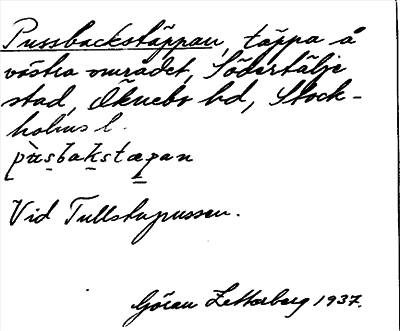 Pussbackstäppan, täppa å
västra området, Södertälje
stad, Öknebo hd, Stock-
holms l.
pùsbakstæpan
Vid Tullstugussen.
Göran Zetterberg 1937.